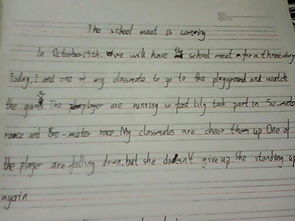 The school meet is coming
In October 19th. we will have the school meet for a three day
Today, I and one of my classmate to go to the playground and watch
the game The player are running so fast lily took part in 50-meter
race and 800-meter race My classmates are cheer them up One of
the player are falling down. but she doesn't give up the standing up
again